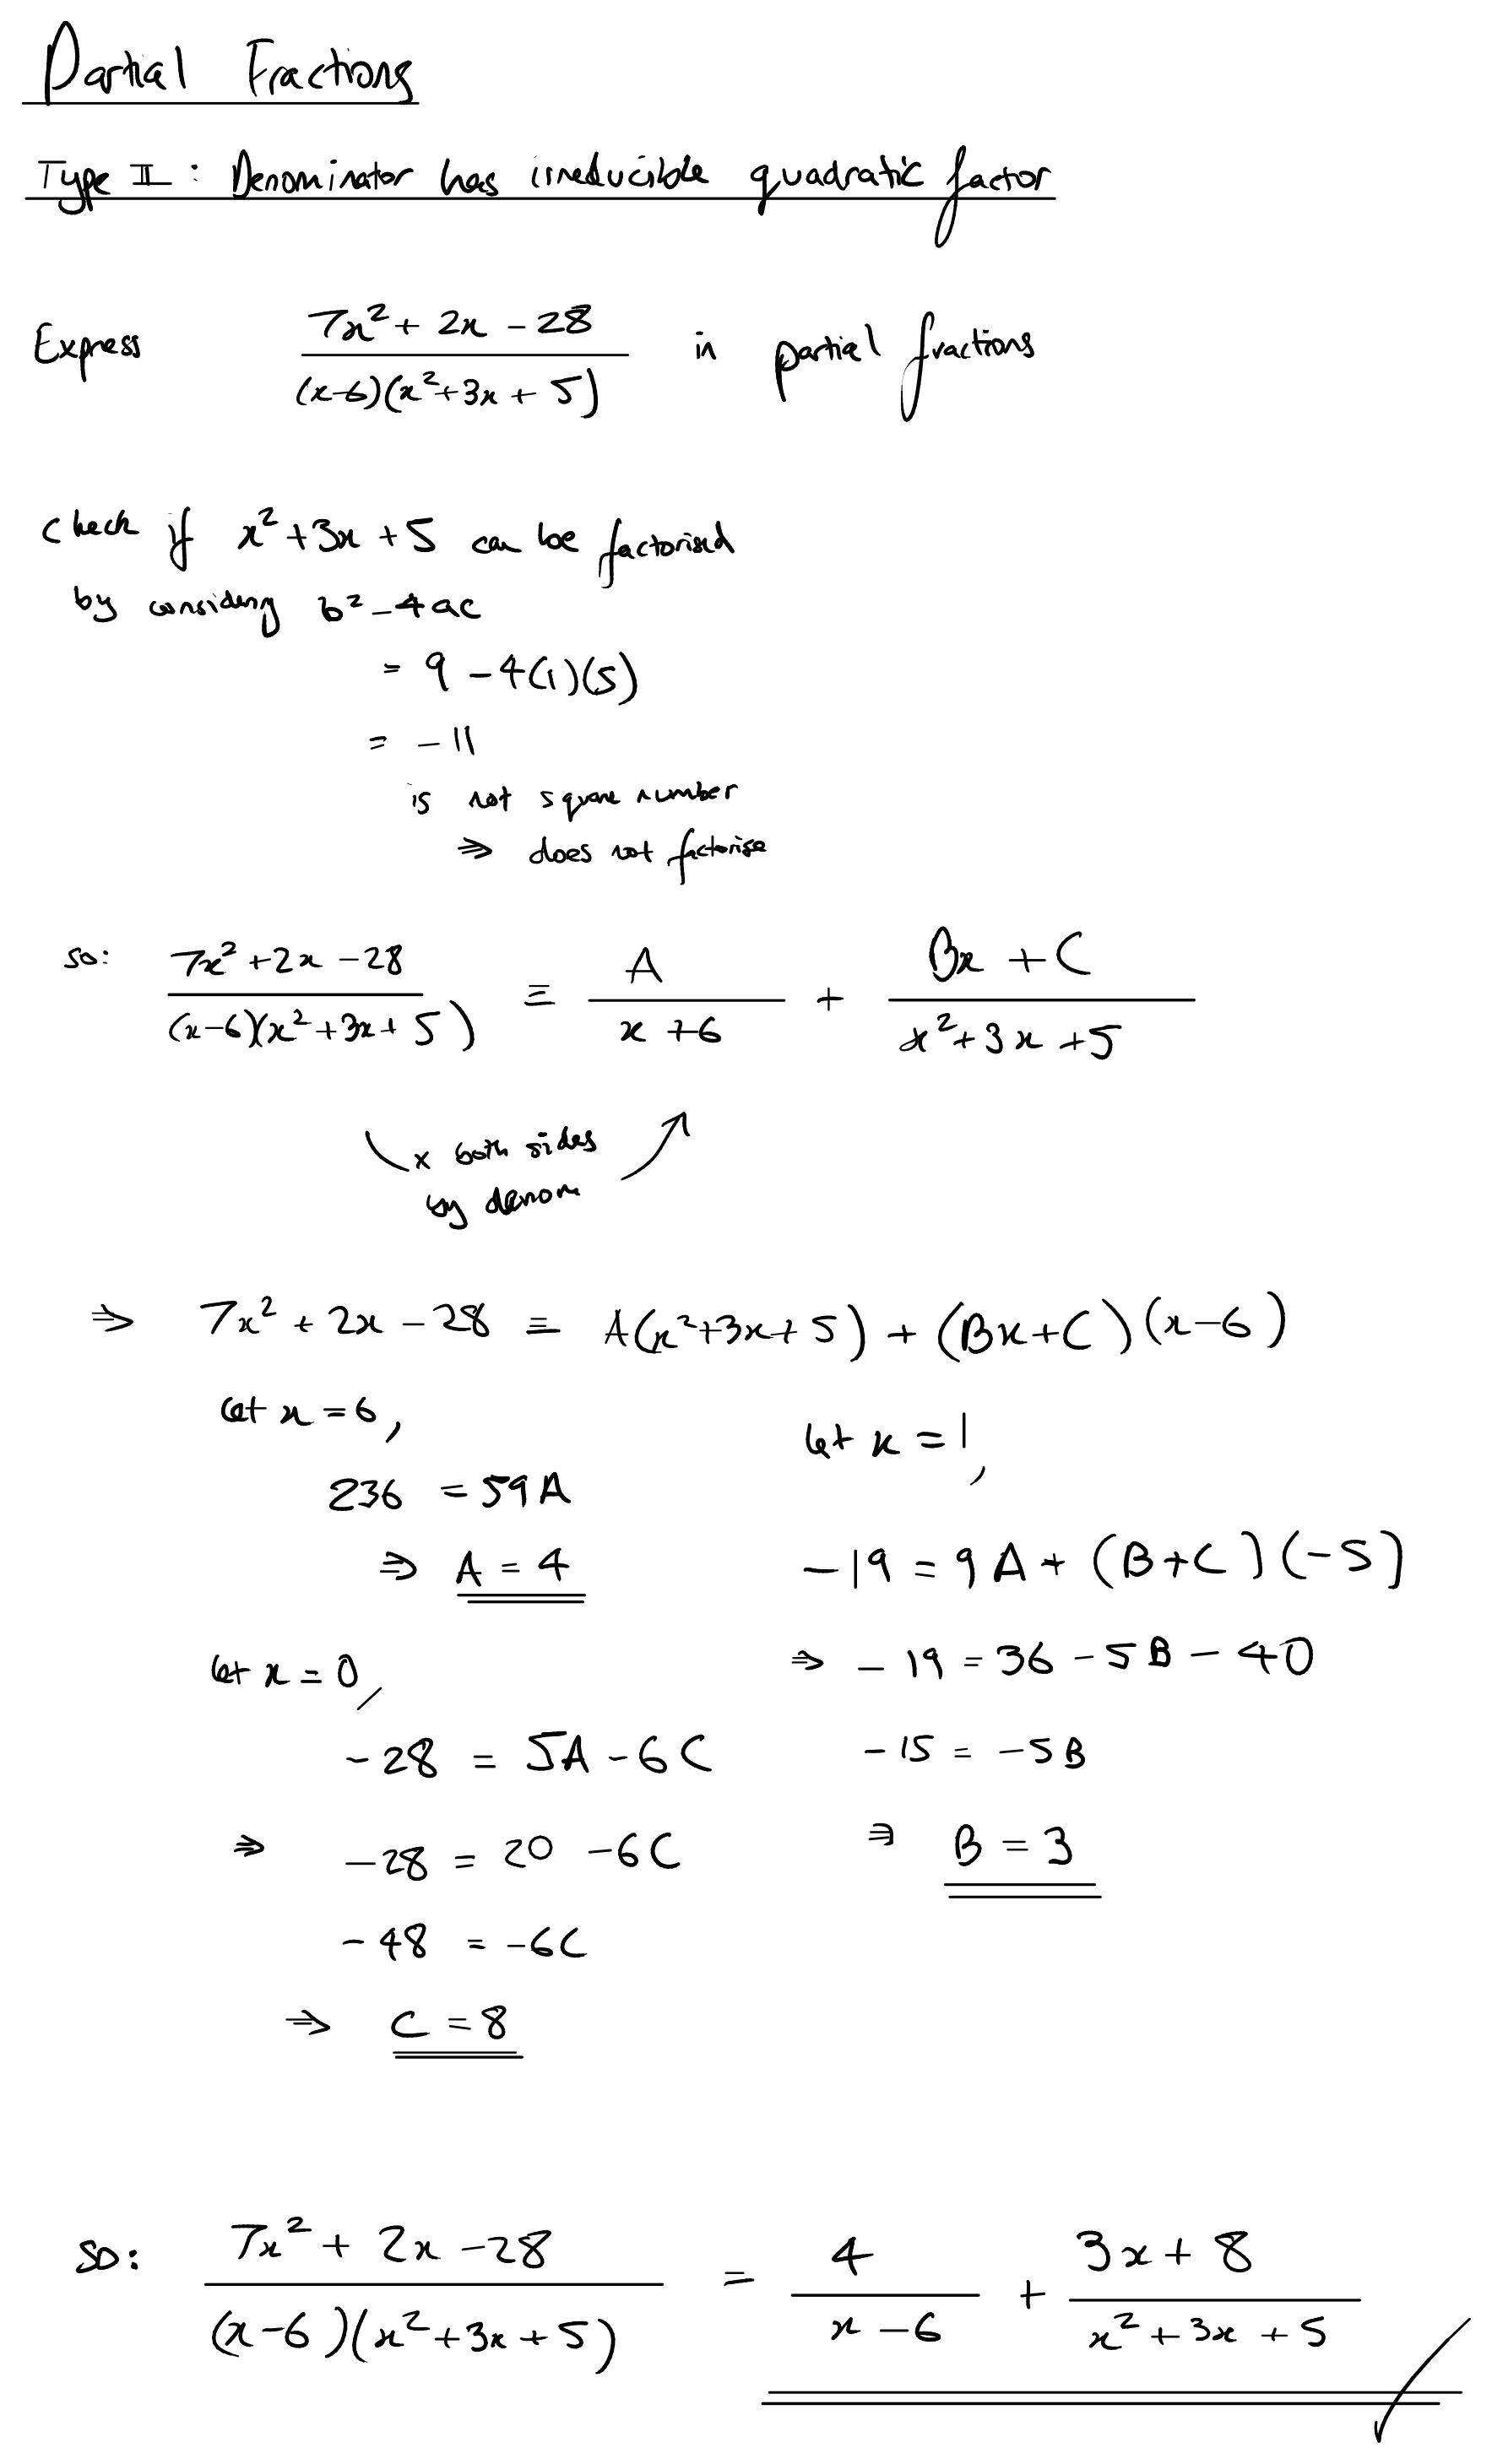 Partial Fractions
Type II : Denominator has irreducible quadratic factor
Express (7x² + 2x - 28)/((x-6)(x²+3x+5)) in partial fractions
Check if x²+3x+5 can be factorised
by considering b²-4ac
= 9 - 4(1)(5)
= -11
is not square number
⇒ does not factorise
so: (7x²+2x-28)/((x-6)(x²+3x+5)) ≡ A/(x+6) + (Bx+C)/(x²+3x+5)
x both sides
by denom
⇒ 7x² + 2x - 28 ≡ A(x²+3x+5) + (Bx+C)(x-6)
let x=6,
236 = 59A
⇒ A = 4
let x=0,
-28 = 5A - 6C
⇒ -28 = 20 - 6C
-48 = -6C
⇒ C = 8
let x=1,
-19 = 9A + (B+C)(-5)
⇒ -19 = 36 - 5B - 40
-15 = -5B
⇒ B = 3
so: (7x² + 2x - 28)/((x-6)(x²+3x+5)) = 4/(x-6) + (3x+8)/(x²+3x+5)